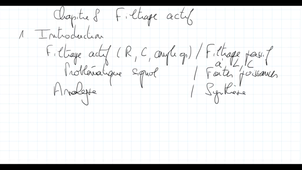 Chapitre 8 Filtrage actif
1 Introduction
Filtrage actif (R, C, ampli op) / Filtrage passif
à L, C
Problématique signal / Fortes puissances
Analyse / Synthèse